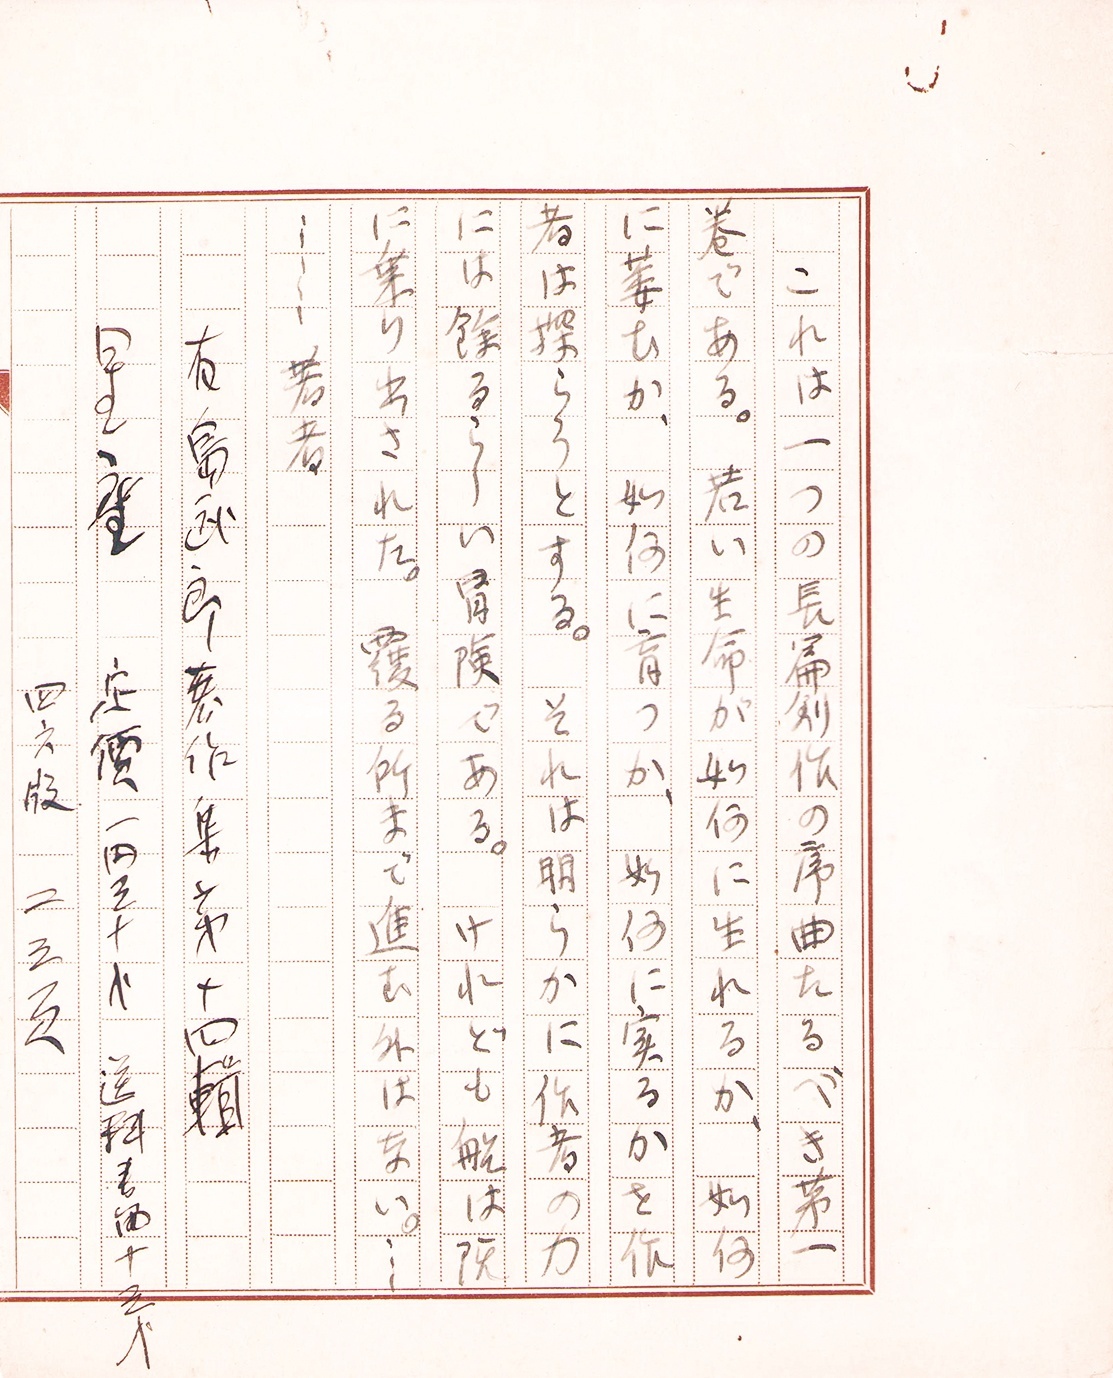 これは一つの長篇創作の序曲たるべき第一
巻である。若い生命が如何に生れるか、如何
に萎むか、如何に育つか、如何に実るかを作
者は探らうとする。それは明らかに作者の力
には餘るらしい冒険である。けれども船は既
に乗り出された。覆る所まで進む外はない。…
……著者
有島武郎著作集第十四輯
星座 定價一円五十
四六版 二三頁